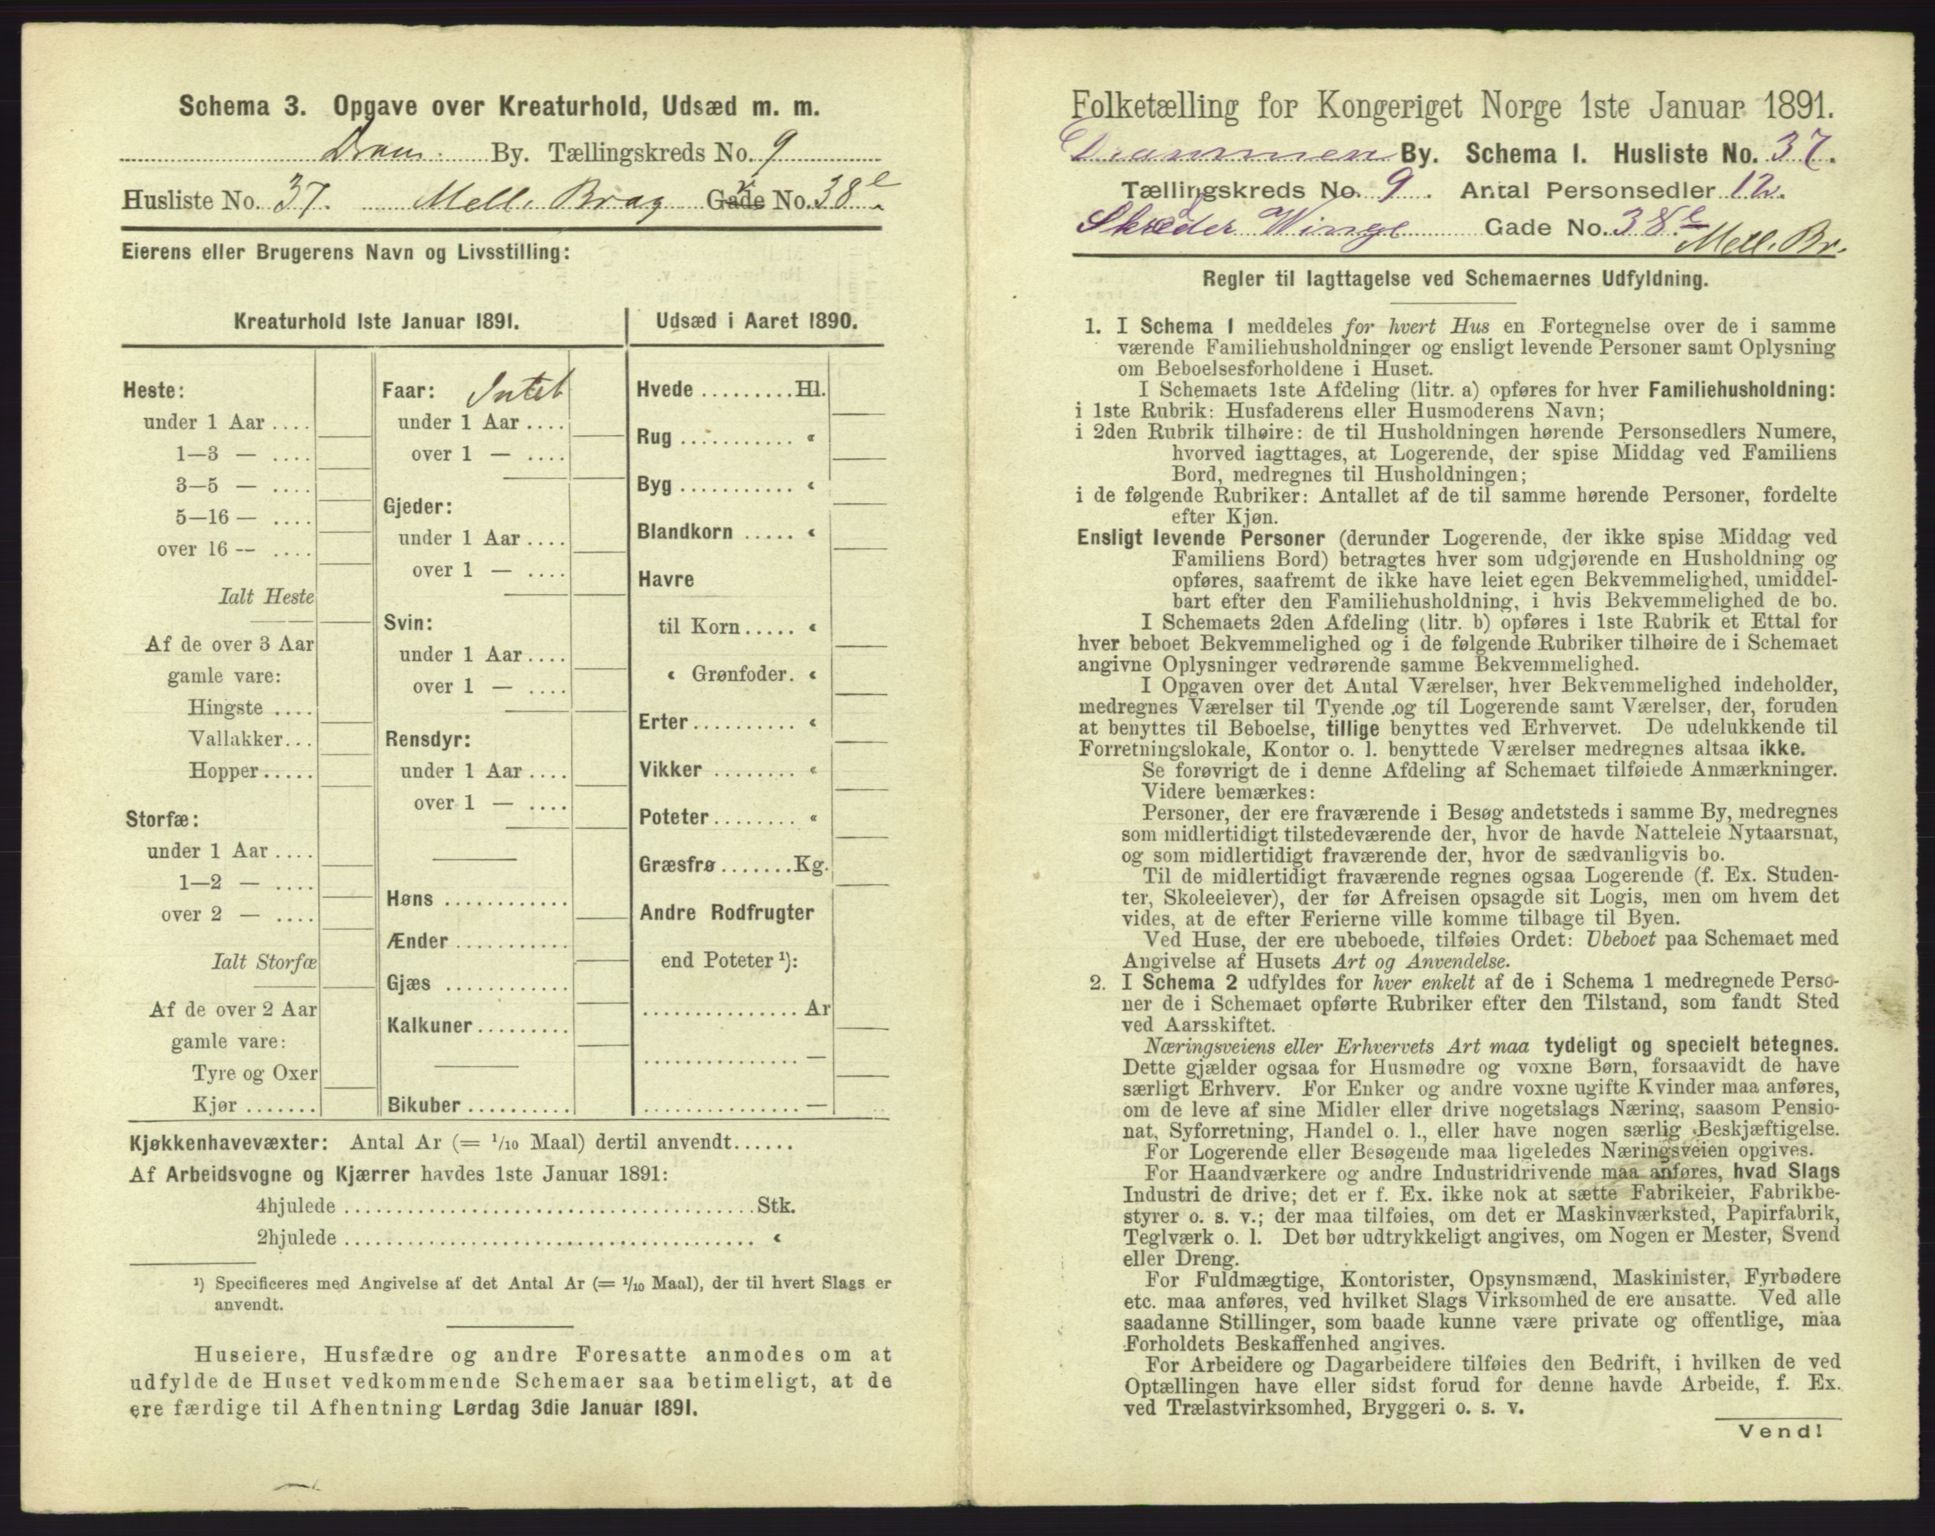 Schema 3. Opgave over Kreaturhold, Udsæd m. m.
Dram. By. Tællingskreds No. 9
Husliste No. 37. Mell. Brag Gade No. 38e.
Eierens eller Brugerens Navn og Livsstilling:
Kreaturhold 1ste Januar 1891.
Heste:
under 1 Aar ....
1—3 — ....
3—5 — ....
5—16 — ....
over 16 — ....
Ialt Heste
Af de over 3 Aar
gamle vare:
Hingste ....
Vallakker...
Hopper.....
Storfæ:
under 1 Aar ....
1—2 — ....
over 2 — ....
Ialt Storfæ
Af de over 2 Aar
gamle vare:
Tyre og Oxer
Kjør .......
Faar: Intet
under 1 Aar ....
over 1 — ....
Gjeder:
under 1 Aar ....
over 1 — ....
Svin:
under 1 Aar ....
over 1 — ....
Rensdyr:
under 1 Aar ....
over 1 — ....
Høns ............
Ænder ...........
Gjæs ............
Kalkuner .........
Bikuber ..........
Udsæd i Aaret 1890.
Hvede ......... Hl.
Rug ........... «
Byg ........... «
Blandkorn ..... «
Havre
til Korn ..... «
« Grønfoder. «
Erter .......... «
Vikker ......... «
Poteter ........ «
Græsfrø ....... Kg.
Andre Rodfrugter
end Poteter ¹):
............... Ar
............... —
............... —
Kjøkkenhavevæxter: Antal Ar (= 1/10 Maal) dertil anvendt......
Af Arbeidsvogne og Kjærrer havdes 1ste Januar 1891:
4hjulede ........................................ Stk.
2hjulede ........................................ «
¹) Specificeres med Angivelse af det Antal Ar (= 1/10 Maal), der til hvert Slags er
anvendt.
Huseiere, Husfædre og andre Foresatte anmodes om at
udfylde de Huset vedkommende Schemaer saa betimeligt, at de
ere færdige til Afhentning Lørdag 3die Januar 1891.
Folketælling for Kongeriget Norge 1ste Januar 1891.
Drammen By. Schema I. Husliste No. 37.
Tællingskreds No. 9. Antal Personsedler 12.
Skræder Winge Gade No. 38e Mell. Br.
Regler til Iagttagelse ved Schemaernes Udfyldning.
1. I Schema 1 meddeles for hvert Hus en Fortegnelse over de i samme
værende Familiehusholdninger og ensligt levende Personer samt Oplysning
om Beboelsesforholdene i Huset.
I Schemaets 1ste Afdeling (litr. a) opføres for hver Familiehusholdning:
i 1ste Rubrik: Husfaderens eller Husmoderens Navn;
i 2den Rubrik tilhøire: de til Husholdningen hørende Personsedlers Numere,
hvorved iagttages, at Logerende, der spise Middag ved Familiens
Bord, medregnes til Husholdningen;
i de følgende Rubriker: Antallet af de til samme hørende Personer, fordelte
efter Kjøn.
Ensligt levende Personer (derunder Logerende, der ikke spise Middag ved
Familiens Bord) betragtes hver som udgjørende en Husholdning og
opføres, saafremt de ikke have leiet egen Bekvemmelighed, umiddel-
bart efter den Familiehusholdning, i hvis Bekvemmelighed de bo.
I Schemaets 2den Afdeling (litr. b) opføres i 1ste Rubrik et Ettal for
hver beboet Bekvemmelighed og i de følgende Rubriker tilhøire de i Schemaet
angivne Oplysninger vedrørende samme Bekvemmelighed.
I Opgaven over det Antal Værelser, hver Bekvemmelighed indeholder,
medregnes Værelser til Tyende og til Logerende samt Værelser, der, foruden
at benyttes til Beboelse, tillige benyttes ved Erhvervet. De udelukkende til
Forretningslokale, Kontor o. l. benyttede Værelser medregnes altsaa ikke.
Se forøvrigt de i denne Afdeling af Schemaet tilføiede Anmærkninger.
Videre bemærkes:
Personer, der ere fraværende i Besøg andetsteds i samme By, medregnes
som midlertidigt tilstedeværende der, hvor de havde Natteleie Nytaarsnat,
og som midlertidigt fraværende der, hvor de sædvanligvis bo.
Til de midlertidigt fraværende regnes ogsaa Logerende (f. Ex. Studen-
ter, Skoleelever), der før Afreisen opsagde sit Logis, men om hvem det
vides, at de efter Ferierne ville komme tilbage til Byen.
Ved Huse, der ere ubeboede, tilføies Ordet: Ubeboet paa Schemaet med
Angivelse af Husets Art og Anvendelse.
2. I Schema 2 udfyldes for hver enkelt af de i Schema 1 medregnede Perso-
ner de i Schemaet opførte Rubriker efter den Tilstand, som fandt Sted
ved Aarsskiftet.
Næringsveiens eller Erhvervets Art maa tydeligt og specielt betegnes.
Dette gjælder ogsaa for Husmødre og voxne Børn, forsaavidt de have
særligt Erhverv. For Enker og andre voxne ugifte Kvinder maa anføres,
om de leve af sine Midler eller drive nogetslags Næring, saasom Pensio-
nat, Syforretning, Handel o. l., eller have nogen særlig Beskjæftigelse.
For Logerende eller Besøgende maa ligeledes Næringsveien opgives.
For Haandværkere og andre Industridrivende maa anføres, hvad Slags
Industri de drive; det er f. Ex. ikke nok at sætte Fabrikeier, Fabrikbe-
styrer o. s. v.; der maa tilføies, om det er Maskinværksted, Papirfabrik,
Teglværk o. l. Det bør udtrykkeligt angives, om Nogen er Mester, Svend
eller Dreng.
For Fuldmægtige, Kontorister, Opsynsmænd, Maskinister, Fyrbødere
etc. maa anføres, ved hvilket Slags Virksomhed de ere ansatte. Ved alle
saadanne Stillinger, som baade kunne være private og offentlige, maa
Forholdets Beskaffenhed angives.
For Arbeidere og Dagarbeidere tilføies den Bedrift, i hvilken de ved
Optællingen have eller sidst forud for denne havde Arbeide, f. Ex.
ved Trælastvirksomhed, Bryggeri o. s. v.
Vend!